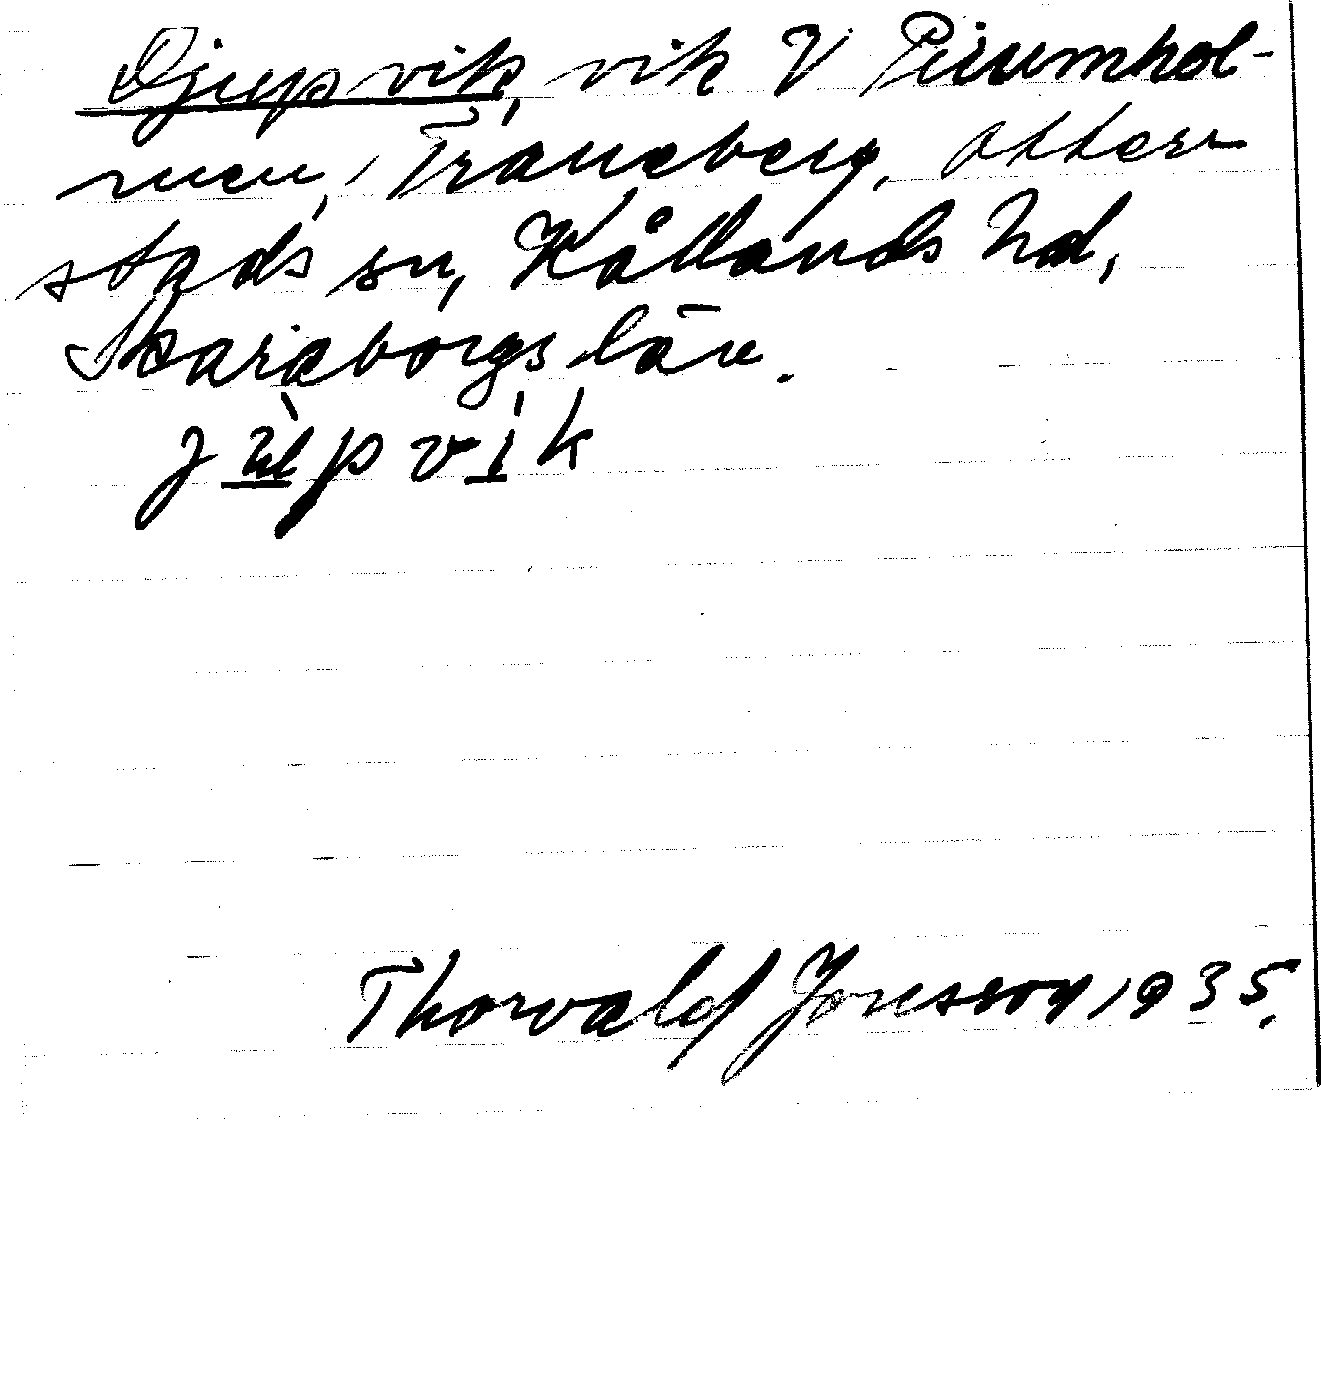 Djupvik, vik V Pirumhol-
men, Traneberg, Otter-
stads sn, Kållands hd,
Skaraborgs län.
Thorvald Jonsson 1935.